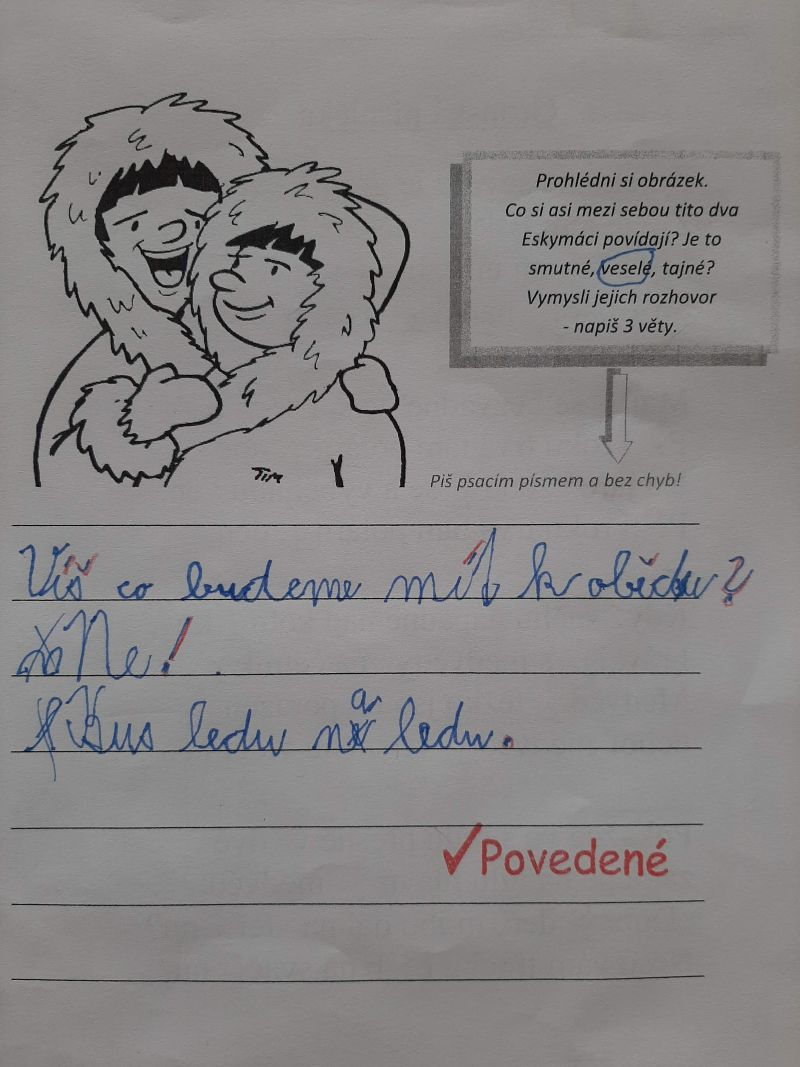 Prohlédni si obrázek.
Co si asi mezi sebou tito dva
Eskymáci povídají? Je to
smutné, veselé, tajné?
Vymysli jejich rozhovor
- napiš 3 věty.
Tim
Piš psacím písmem a bez chyb!
Víš co budeme mít k obědu?
Ne!.
Kus ledu na ledu.
✓Povedené